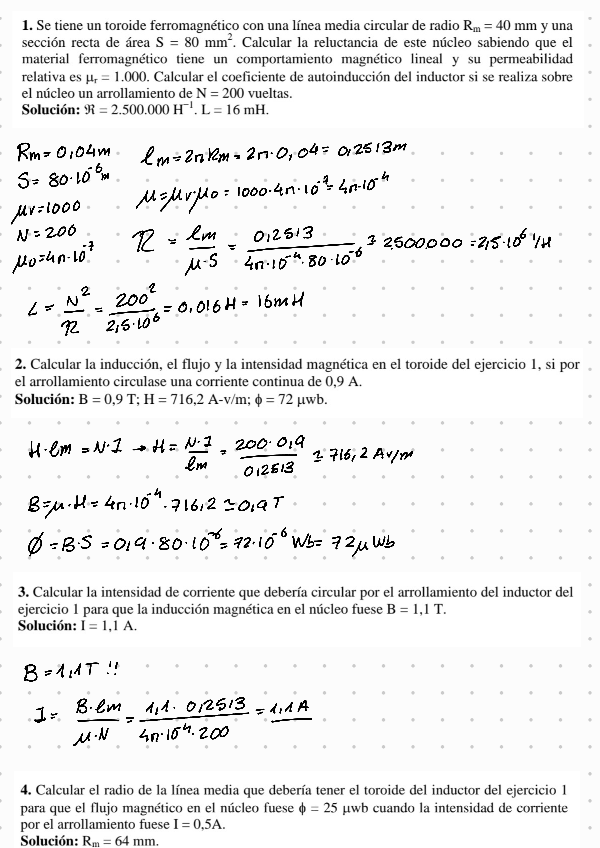 1. Se tiene un toroide ferromagnético con una línea media circular de radio Rₘ = 40 mm y una
sección recta de área S = 80 mm². Calcular la reluctancia de este núcleo sabiendo que el
material ferromagnético tiene un comportamiento magnético lineal y su permeabilidad
relativa es μᵣ = 1.000. Calcular el coeficiente de autoinducción del inductor si se realiza sobre
el núcleo un arrollamiento de N = 200 vueltas.
Solución: ℜ = 2.500.000 H⁻¹. L = 16 mH.
Rm = 0,04m
S = 80·10⁻⁶ m
μr = 1000
N = 200
μ₀ = 4π·10⁻⁷
lm = 2πRm = 2π·0,04 = 0,2513m
μ = μr·μ₀ = 1000·4π·10⁻⁷ = 4π·10⁻⁴
R = lm / μ·S = 0,2513 / 4π·10⁻⁴·80·10⁻⁶ = 2500000 = 2,5·10⁶ 1/H
L = N² / R = 200² / 2,5·10⁶ = 0,016H = 16mH
2. Calcular la inducción, el flujo y la intensidad magnética en el toroide del ejercicio 1, si por
el arrollamiento circulase una corriente continua de 0,9 A.
Solución: B = 0,9 T; H = 716,2 A-v/m; ϕ = 72 μwb.
H·lm = N·I → H = N·I / lm = 200·0,9 / 0,2513 ≃ 716,2 Av/m
B = μ·H = 4π·10⁻⁴·716,2 ≃ 0,9T
Ø = B·S = 0,9·80·10⁻⁶ = 72·10⁻⁶ Wb = 72μWb
3. Calcular la intensidad de corriente que debería circular por el arrollamiento del inductor del
ejercicio 1 para que la inducción magnética en el núcleo fuese B = 1,1 T.
Solución: I = 1,1 A.
B = 1,1T !!
I = B·lm / μ·N = 1,1·0,2513 / 4π·10⁻⁴·200 = 1,1A
4. Calcular el radio de la línea media que debería tener el toroide del inductor del ejercicio 1
para que el flujo magnético en el núcleo fuese ϕ = 25 μwb cuando la intensidad de corriente
por el arrollamiento fuese I = 0,5A.
Solución: Rₘ = 64 mm.